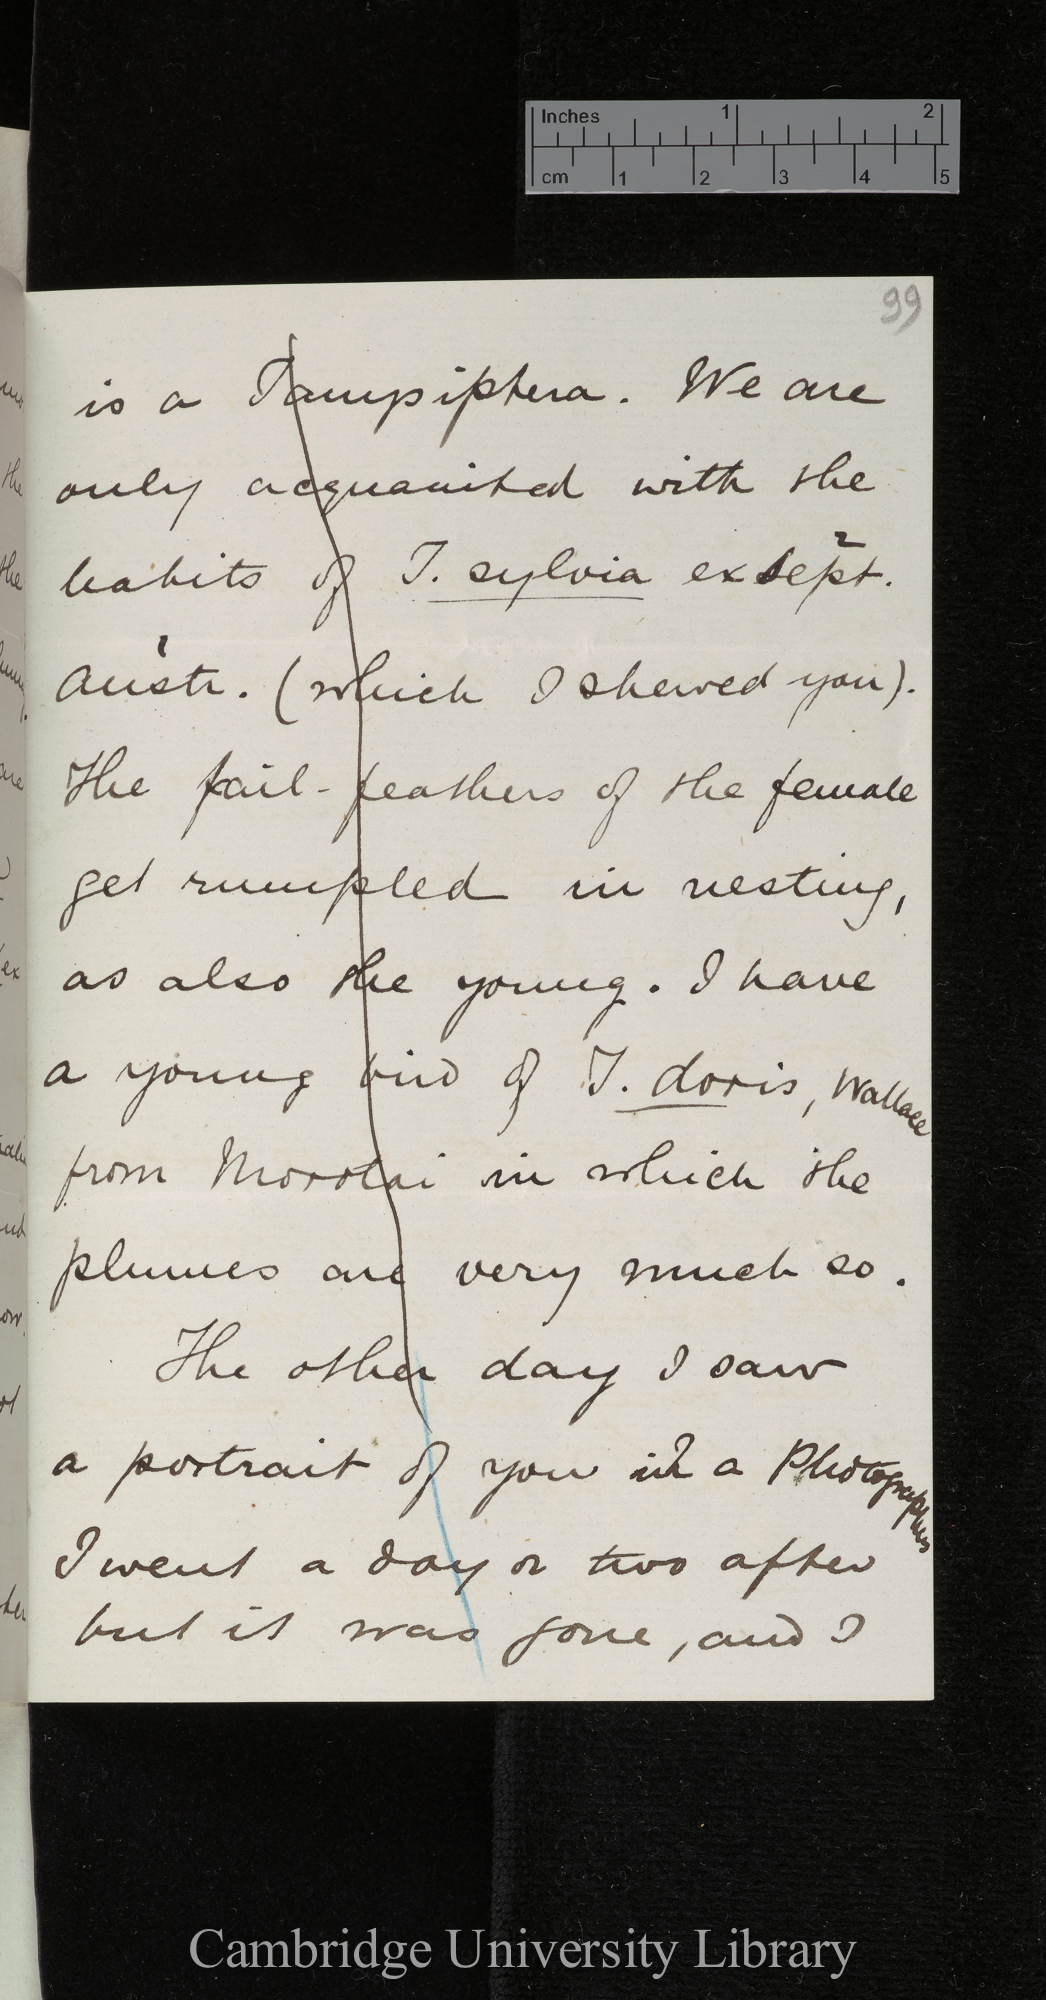 Inches 1 2
cm 1 2 3 4 5
99
is a Tanysiptera. We are
only acquainted with the
habits of T. sylvia ex sept.
Austr. (which I shewed you).
The tail-feathers of the female
get rumpled in nesting,
as also the young. I have
a young bird of T. doris, Wallace
from Morotai in which the
plumes are very much so.
The other day I saw
a portrait of you in a Photographers
I went a day or two after
but it was gone, and I
Cambridge University Library